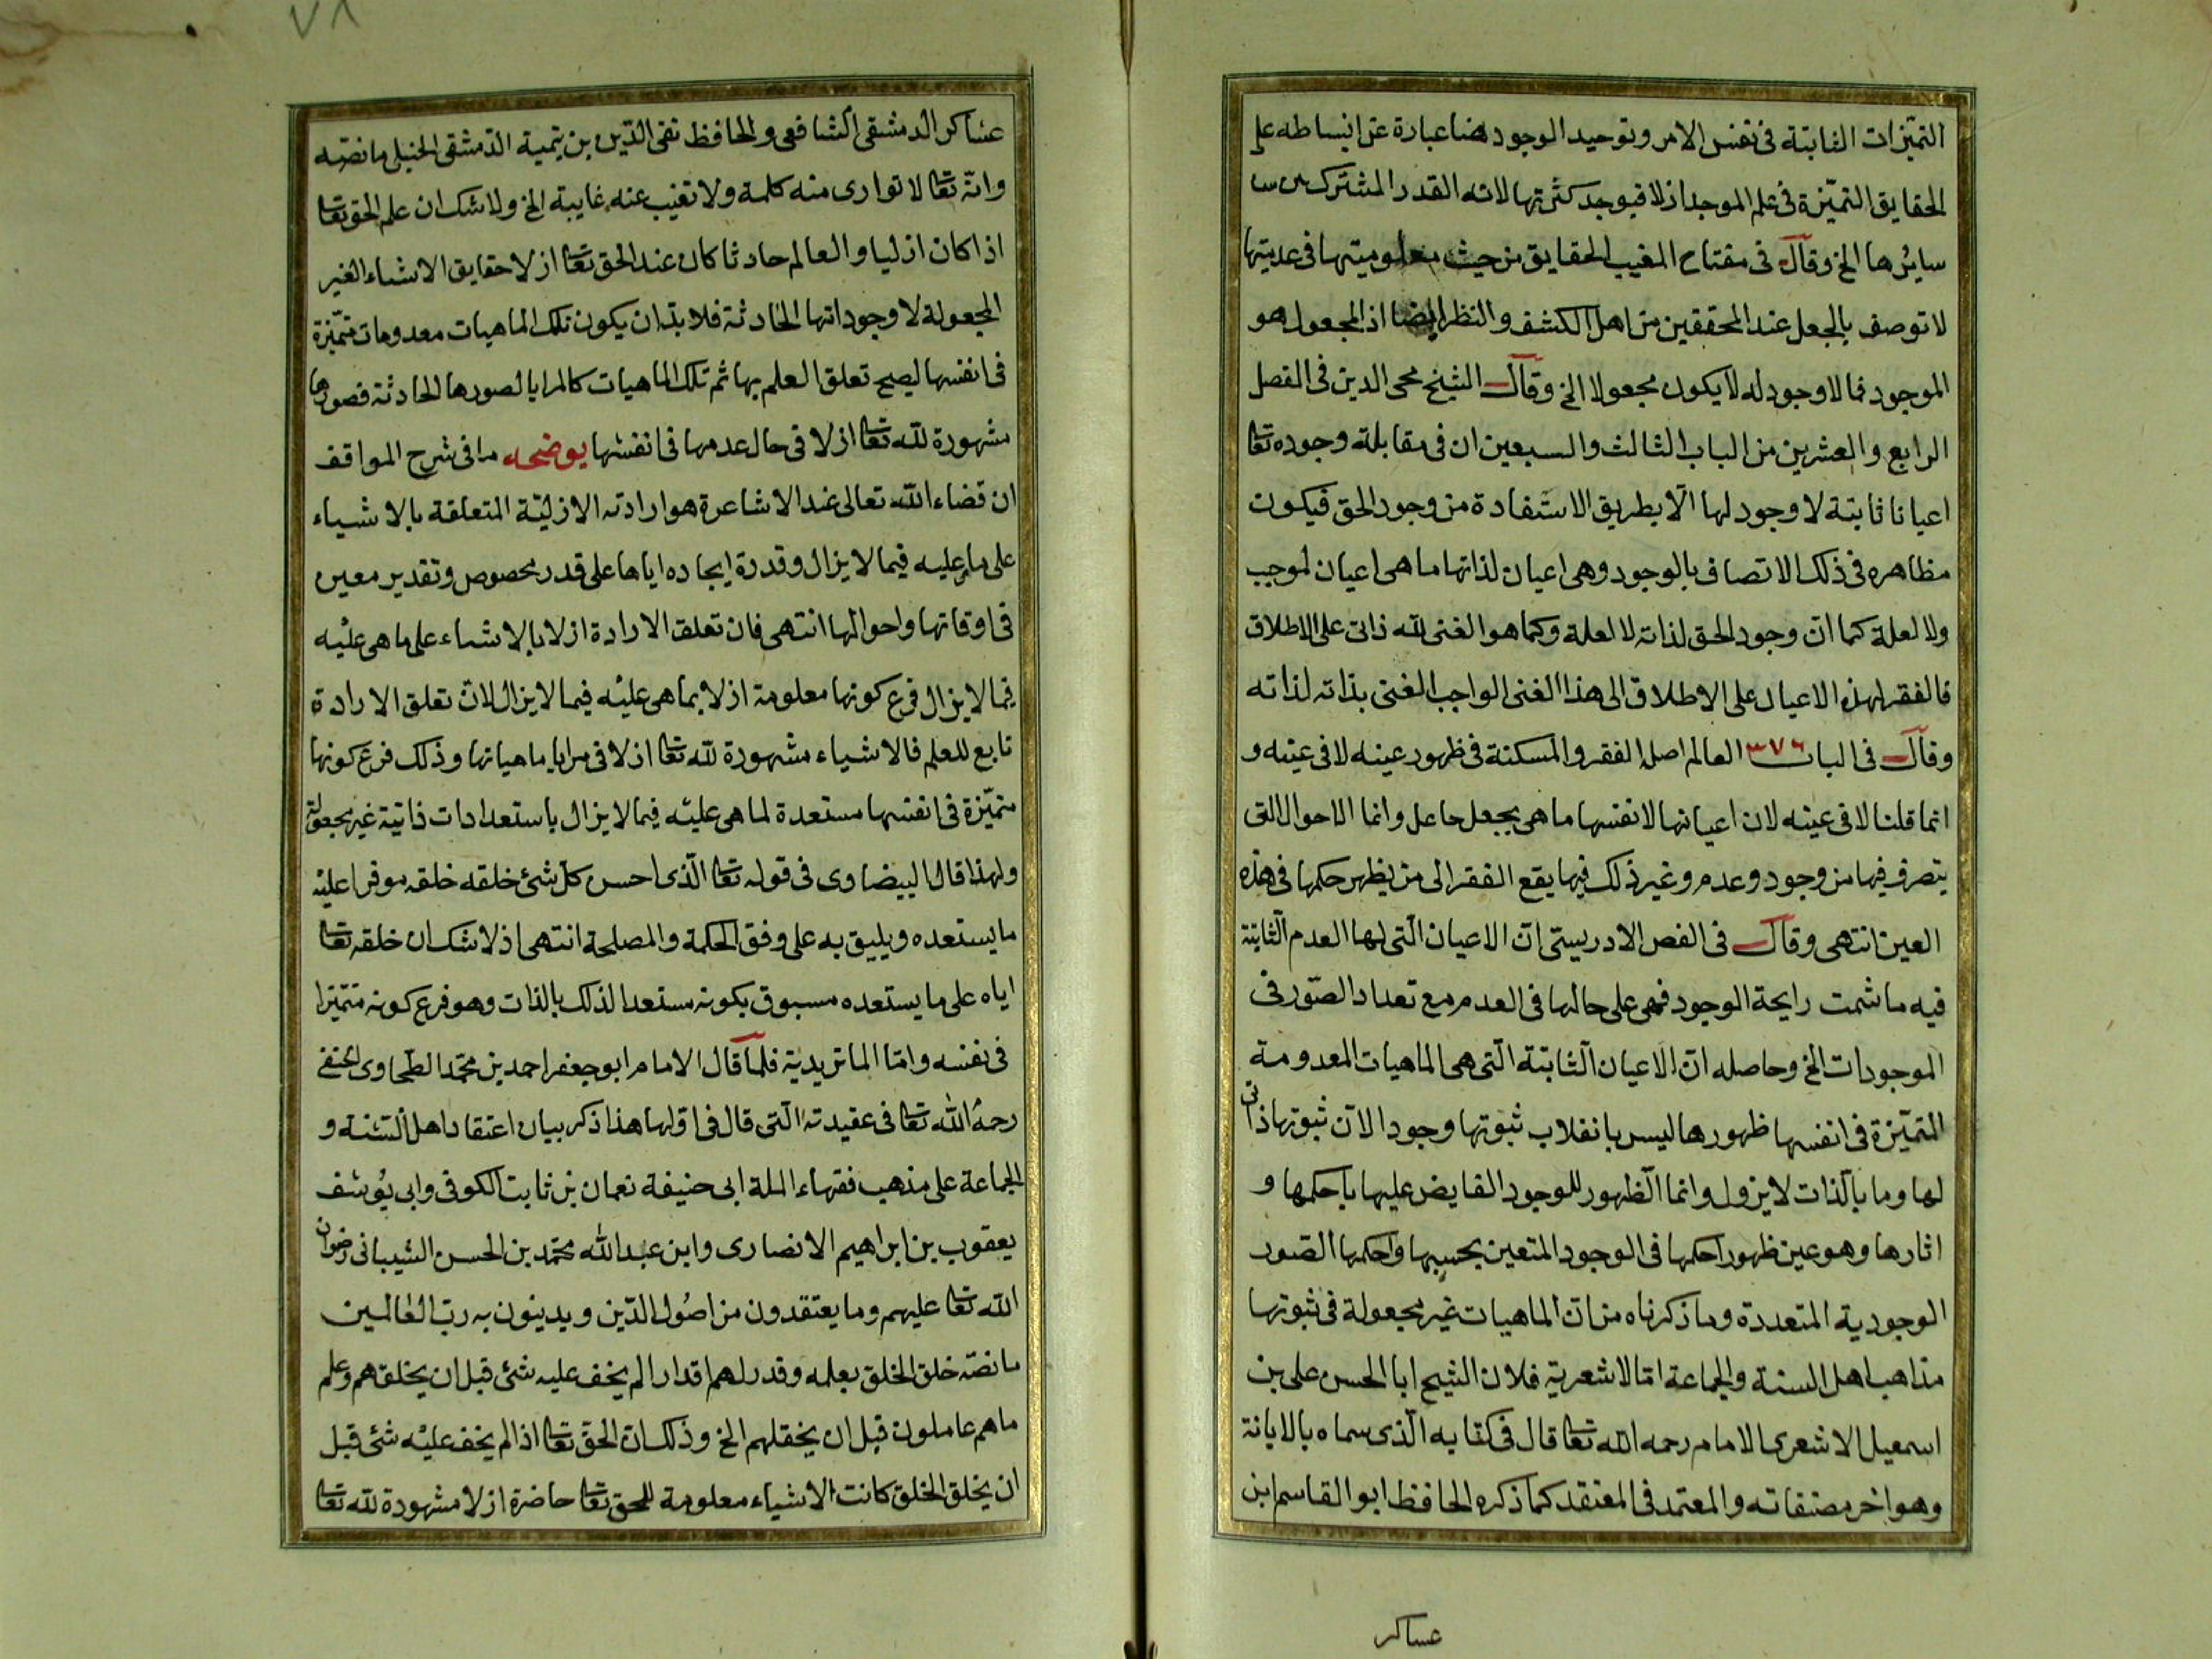 التميّزات الثابتة فى نفس الامر وتوحيد الوجود هنا عبارة عن انبساطه على
الحقايق التميّزة فى علم الموجد ازلا فيوجد كثرتها لانه القدر المشترك بين
سايرها الخ وقال فى مفتاح الغيب الحقايق من حيث معلوميتها فى عدميتها
لا توصف بالجعل عند المحققين من اهل الكشف والنظر ايضا اذ المجعول هو
الموجود فما لا وجود له لا يكون مجعولا الخ وقال الشيخ محى الدين فى الفصل
الرابع والعشرين من الباب الثالث والسبعين ان فى مقابلة وجوده تعا
اعيانا ثابتة لا وجود لها الّا بطريق الاستفادة من وجود الحق فيكون
مظاهره فى ذلك الاتصاف بالوجود وهى اعيان لذاتها ما هى اعيان لموجب
ولا لعلة كما انّ وجود الحق لذاته لا لعلة وكما هو الغنى لله ذاتى على الاطلاق
فالفقر لهذه الاعيان على الاطلاق الى هذا الغنى الواجب الغنى بذاته لذاته
وقال فى الباب ٣٧٦ العالم اصله الفقر والمسكنة فى ظهور عينه لا فى عينه و
انما قلنا لا فى عينه لان اعيانها لانفسها ما هى بجعل جاعل وانما الاحوال التى
يتصرف فيها من وجود وعدم وغير ذلك فيها يقع الفقر الى من يظهر حكمها فى هذه
العين انتهى وقال فى الفص الادريسىّ انّ الاعيان الّتى لها العدم الثابتة
فيه ما شمت رايحة الوجود فهى على حالها فى العدم مع تعداد الصّور فى
الموجودات الخ وحاصله انّ الاعيان الثابتة الّتى هى الماهيات المعدومة
المتميّزة فى انفسها ظهورها ليس بانقلاب ثبوتها وجودا لانّ ثبوتها ذاتى
لها وما بالّذات لا يزول وانما الّظهور للوجود الفايض عليها باحكمها و
اثارها وهو عين ظهور احكمها فى الوجود المتعين بحسبها واحكمها الصّور
الوجودية المتعددة وما ذكرناه من انّ الماهيات غير مجعولة فى ثبوتها
مذاهب اهل السنة والجماعة امّا الاشعريّة فلان الشيخ ابا الحسن على بن
اسمعيل الاشعرى الامام رحمه الله تعا قال فى كتابه الّذى سماه بالابانة
وهو اخر مصنفاته والمعتمد فى المعتقد كما ذكره الحافظ ابو القاسم ابن
عساكر
٧٨
عساكر الدمشقى الشافعى والحافظ تقى الدّين بن تيمية الدّمشقى الحنبلى ما نصّه
وانّه تعا لا توارى منه كلمة ولا تغيب عنه غايبة الخ ولا شك ان علم الحق تعا
اذا كان ازليا والعالم حادثا كان عند الحق تعا ازلا حقايق الاشياء الغير
المجعولة لا وجوداتها الحادثة فلا بدّ ان يكون تلك الماهيات معدومات متميّزة
فى انفسها ليصح تعلق العلم بها ثم تلك الماهيات كالمرايا لصورها الحادثة فصورها
مشهورة لله تعا ازلا فى حال عدمها فى انفسها يوضحه ما فى شرح المواقف
ان قضاء الله تعالى عند الاشاعرة هو ارادته الازليّة المتعلقة بالاشياء
على ما عليه فيما لا يزال وقدرة ايجاده اياها على قدر مخصوص وتقدير معين
فى اوقاتها واحوالها انتهى فان تعلق الارادة ازلا بالاشياء على ما هى عليْه
فيما لا يزال فرع كونها معلومة ازلا بما هى عليْه فيما لا يزال لانّ تعلق الارادة
تابع للعلم فالاشياء مشهورة لله تعا ازلا فى مرايا ماهياتها وذلك فرع كونها
متميّزة فى انفسها مستعدة لما هى عليْه فيما لا يزال باستعدادات ذاتية غير مجعولة
ولهذا قال البيضاوى فى قوله تعا الّذى احسن كلّ شئ خلقه خلقه موفرا عليْه
ما يستعده ويليق به على وفق الحكمة والمصلحة انتهى اذ لا شك ان خلقه تعا
اياه على ما يستعده مسبوق بكونه مستعدا لذلك بالذات وهو فرع كونه متميّزا
فى نفسه وامّا الماتريديّة فلما قال الامام ابو جعفر احمد بن محمّد الطحاوى الحنفى
رحمهُ الله تعا فى عقيدته الّتى قال فى اوّلها هذا ذكر بيان اعتقاد اهل السّنة و
الجماعة على مذهب فقهاء الملة ابى حنيفة نعمان بن ثابت الكوفى وابى يُوسُف
يعقوب بن ابراهيم الانصارى وابن عبد الله محمّد بن الحسن الشيبانى رضوان
الله تعا عليهم وما يعتقدون من اصُول الدّين ويدينون به ربّ العٰالمين
ما نصّه خلق الخلق بعلمه وقدر لهم اقدارا لم يخف عليه شئ قبل ان يخلقهم وعلم
ما هم عاملون قبل ان يخقلهم الخ وذلك انّ الحقّ تعا اذا لم يخف عليْه شئ قبل
ان يخلق الخلق كانت الاشياء معلومة للحق تعا حاضرة ازلا مشهورة لله تعا